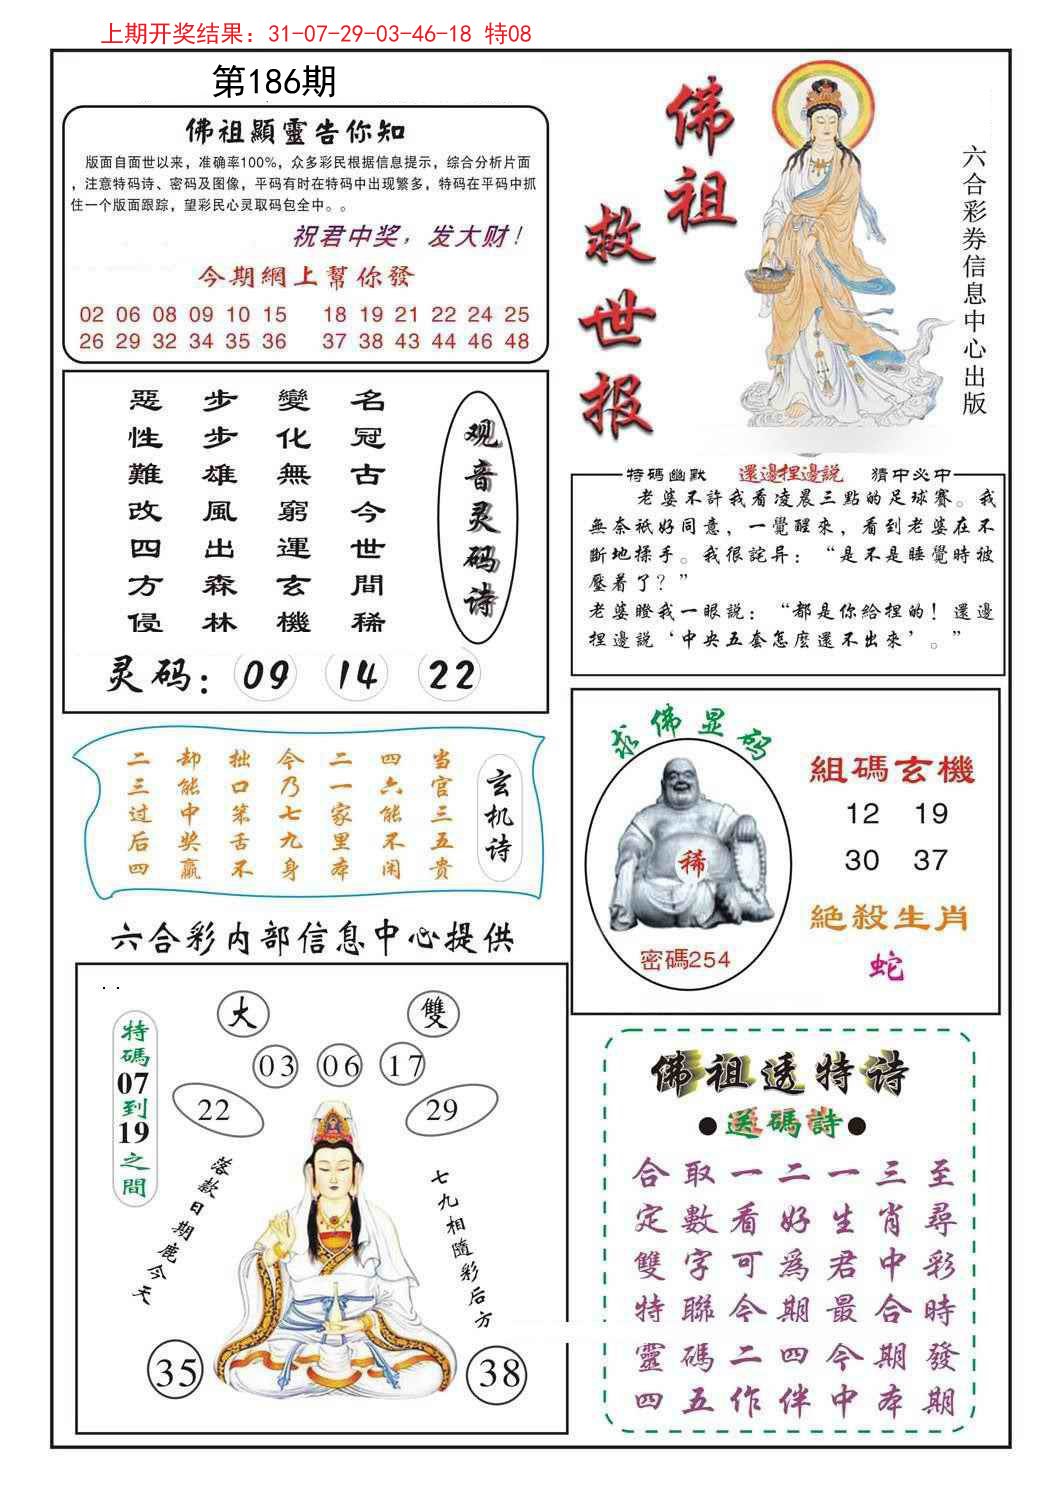 上期开奖结果：31-07-29-03-46-18 特08
第186期
佛祖顯靈告你知
版面自面世以来，准确率100%，众多彩民根据信息提示，综合分析片面
，注意特码诗、密码及图像，平码有时在特码中出现繁多，特码在平码中抓
住一个版面跟踪，望彩民心灵取码包全中。。
祝君中奖，发大财！
今期網上幫你發
02 06 08 09 10 15 18 19 21 22 24 25
26 29 32 34 35 36 37 38 43 44 46 48
佛祖
救世报
六合彩券信息中心出版
观音灵码诗
名冠古今世間稀
變化無窮運玄機
步步雄風出森林
惡性難改四方侵
灵码：09 14 22
特碼幽默 還邊捏邊説 猜中必中
老婆不許我看凌晨三點的足球賽。我
無奈祇好同意，一覺醒來，看到老婆在不
斷地揉手。我很詫异：“是不是睡覺時被
壓着了？”
老婆瞪我一眼説：“都是你給捏的！還邊
捏邊説‘中央五套怎麽還不出來’。”
玄机诗
当官三五贵
四六能不闲
二一家里本
今乃七九身
拙口笨舌不
却能中奖赢
二三过后四
求佛显码
稀
密碼254
組碼玄機
12 19
30 37
絶殺生肖
蛇
六合彩内部信息中心提供
大
雙
03 06 17
22
29
特碼07到19之間
落款日期鹿今天
七九相隨彩后方
35
38
佛祖透特诗
●送碼詩●
至尋彩時發期
三肖中合期本
一生君最今中
二好爲期四伴
一看可今二作
取數字聯碼五
合定雙特靈四